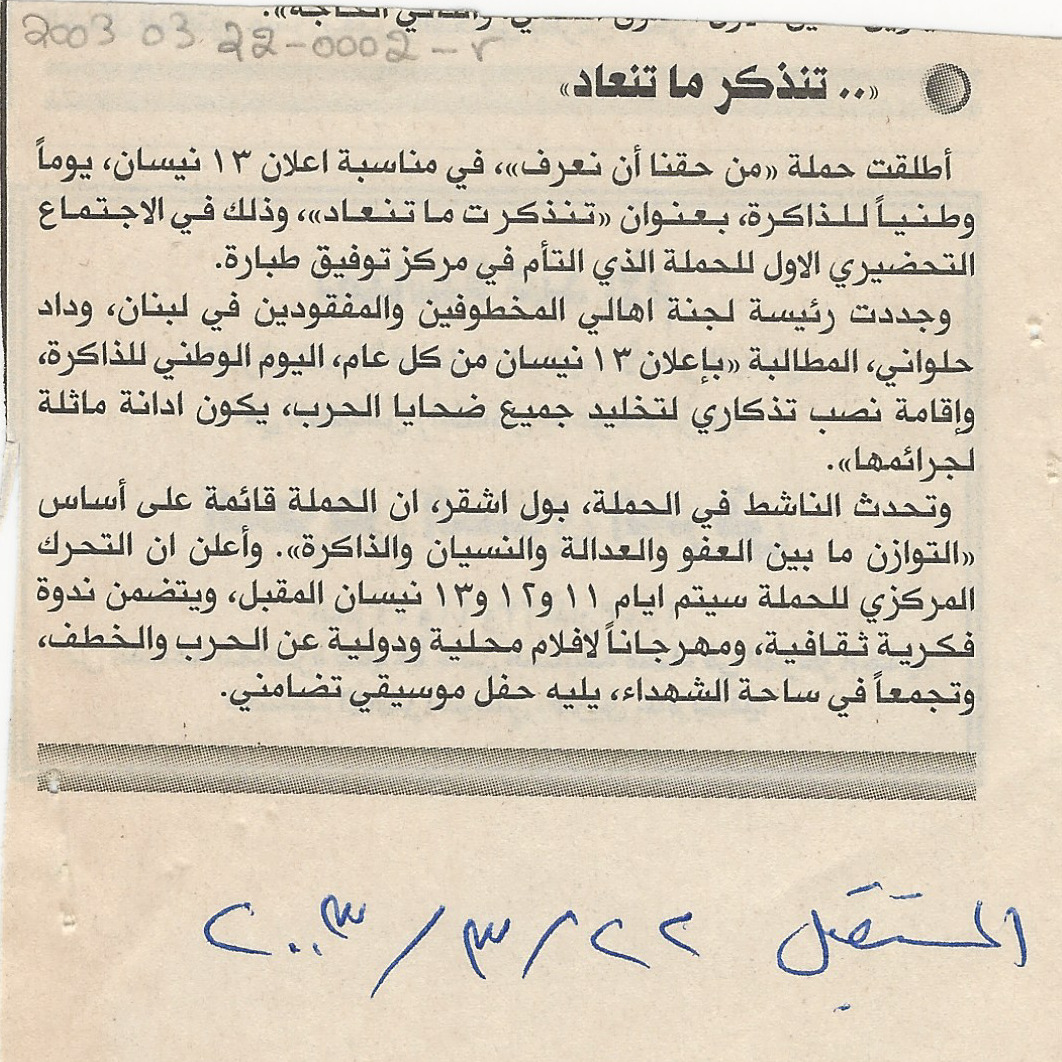 2003 03 22-0002-r
والتالي الحاجة».
«.. تنذكر ما تنعاد»
أطلقت حملة «من حقنا أن نعرف»، في مناسبة اعلان ١٣ نيسان، يوماً
وطنياً للذاكرة، بعنوان «تنذكر ت ما تنعاد»، وذلك في الاجتماع
التحضيري الاول للحملة الذي التأم في مركز توفيق طبارة.
وجددت رئيسة لجنة اهالي المخطوفين والمفقودين في لبنان، وداد
حلواني، المطالبة «بإعلان ١٣ نيسان من كل عام، اليوم الوطني للذاكرة،
وإقامة نصب تذكاري لتخليد جميع ضحايا الحرب، يكون ادانة ماثلة
لجرائمها».
وتحدث الناشط في الحملة، بول اشقر، ان الحملة قائمة على أساس
«التوازن ما بين العفو والعدالة والنسيان والذاكرة». وأعلن ان التحرك
المركزي للحملة سيتم ايام ١١ و١٢ و١٣ نيسان المقبل، ويتضمن ندوة
فكرية ثقافية، ومهرجاناً لافلام محلية ودولية عن الحرب والخطف،
وتجمعاً في ساحة الشهداء، يليه حفل موسيقي تضامني.
المستقبل ٢٢/٣/٢٠٠٣